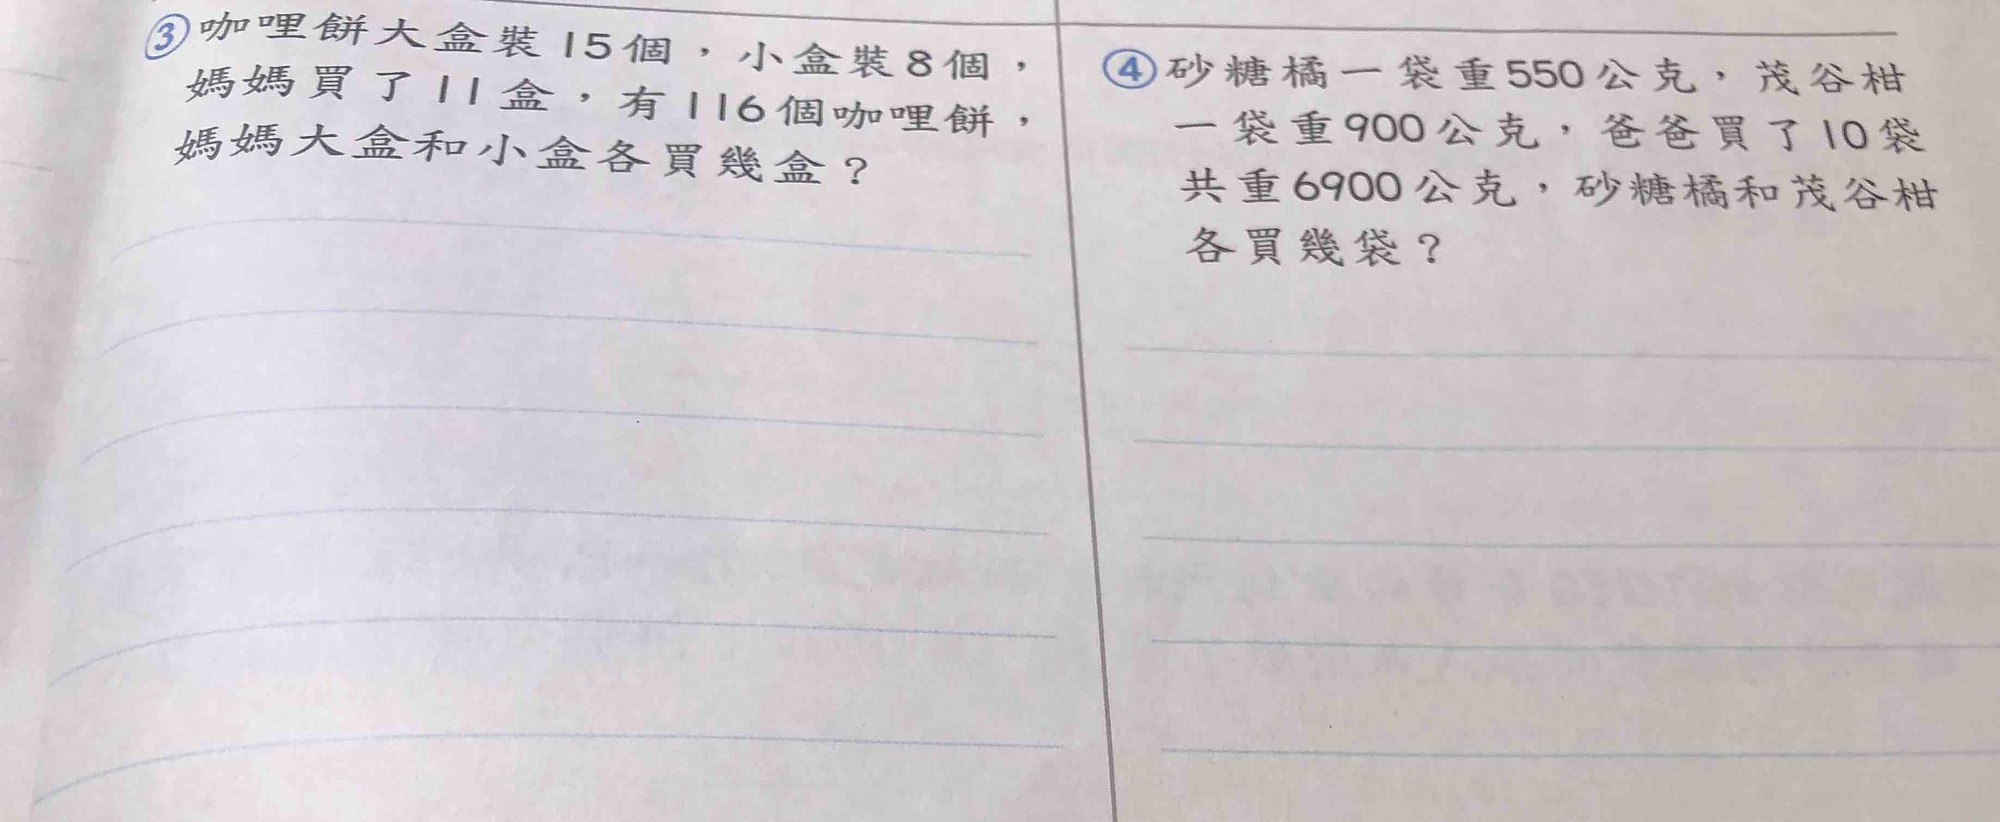 ③咖哩餅大盒裝15個，小盒裝8個，
媽媽買了11盒，有116個咖哩餅，
媽媽大盒和小盒各買幾盒？
④砂糖橘一袋重550公克，茂谷柑
一袋重900公克，爸爸買了10袋
共重6900公克，砂糖橘和茂谷柑
各買幾袋？